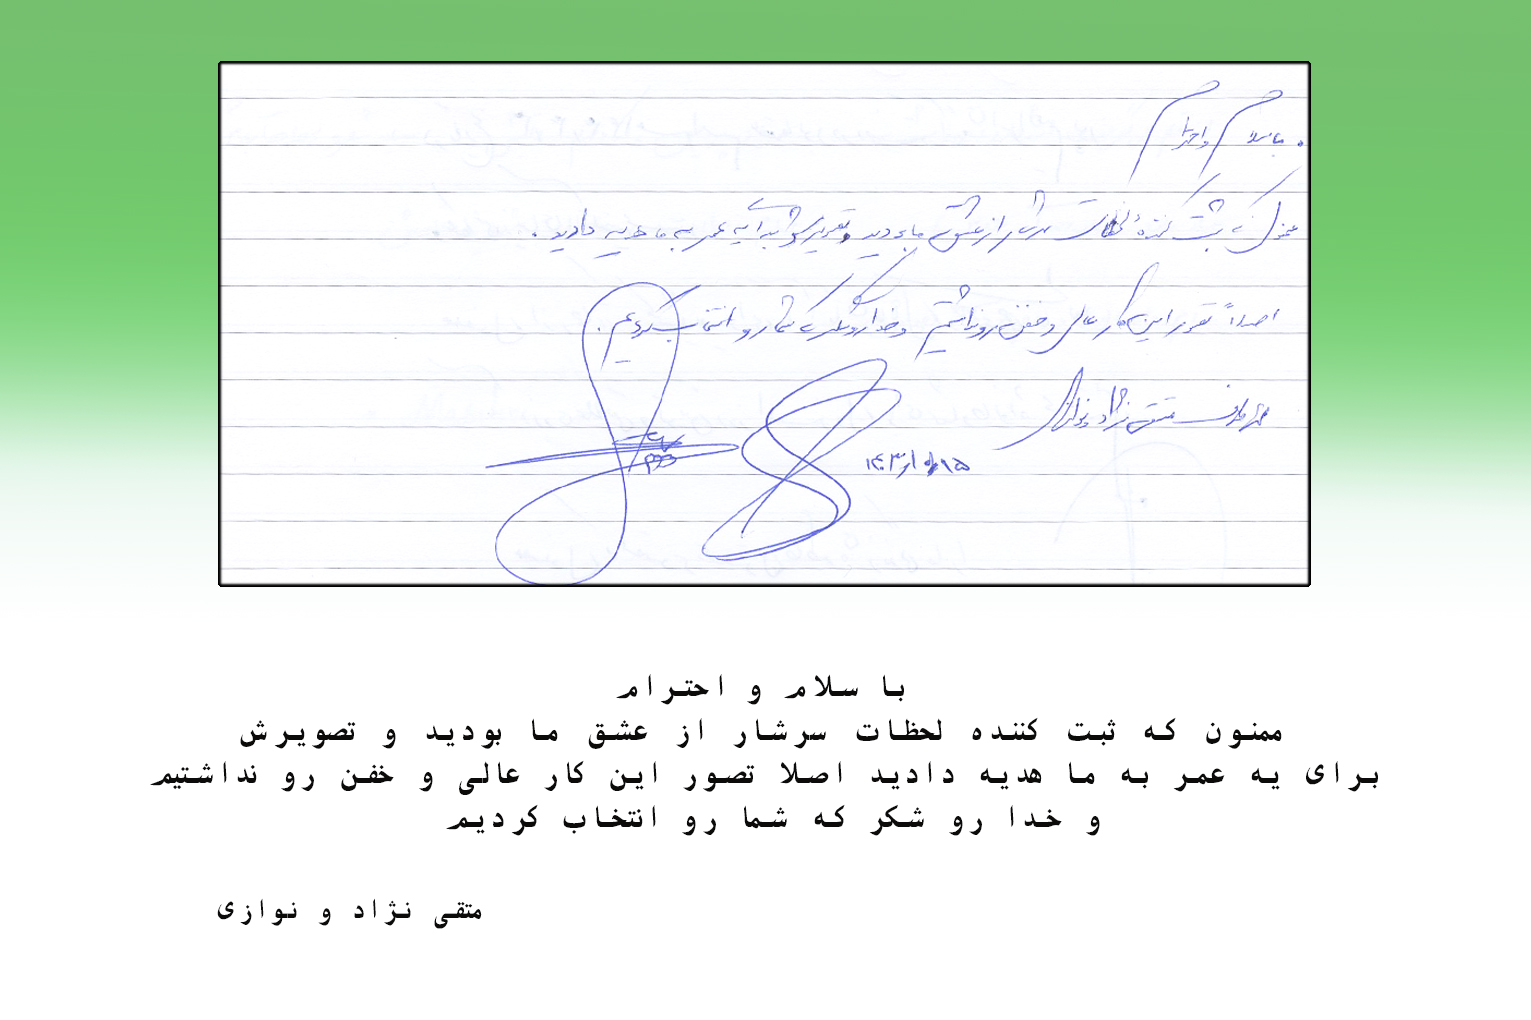 با سلام و احترام
ممنون که ثبت کننده لحظات سرشار از عشق ما بودید و تصویرش برای یه عمر به ما هدیه دادید.
اصلاً تصور این کار عالی و خفن رو نداشتیم و خدا رو شکر که شما رو انتخاب کردیم.
متقی نژاد و نوازی
۱۴۰۳/
با سلام و احترام
ممنون که ثبت کننده لحظات سرشار از عشق ما بودید و تصویرش
برای یه عمر به ما هدیه دادید اصلا تصور این کار عالی و خفن رو نداشتیم
و خدا رو شکر که شما رو انتخاب کردیم
متقی نژاد و نوازی